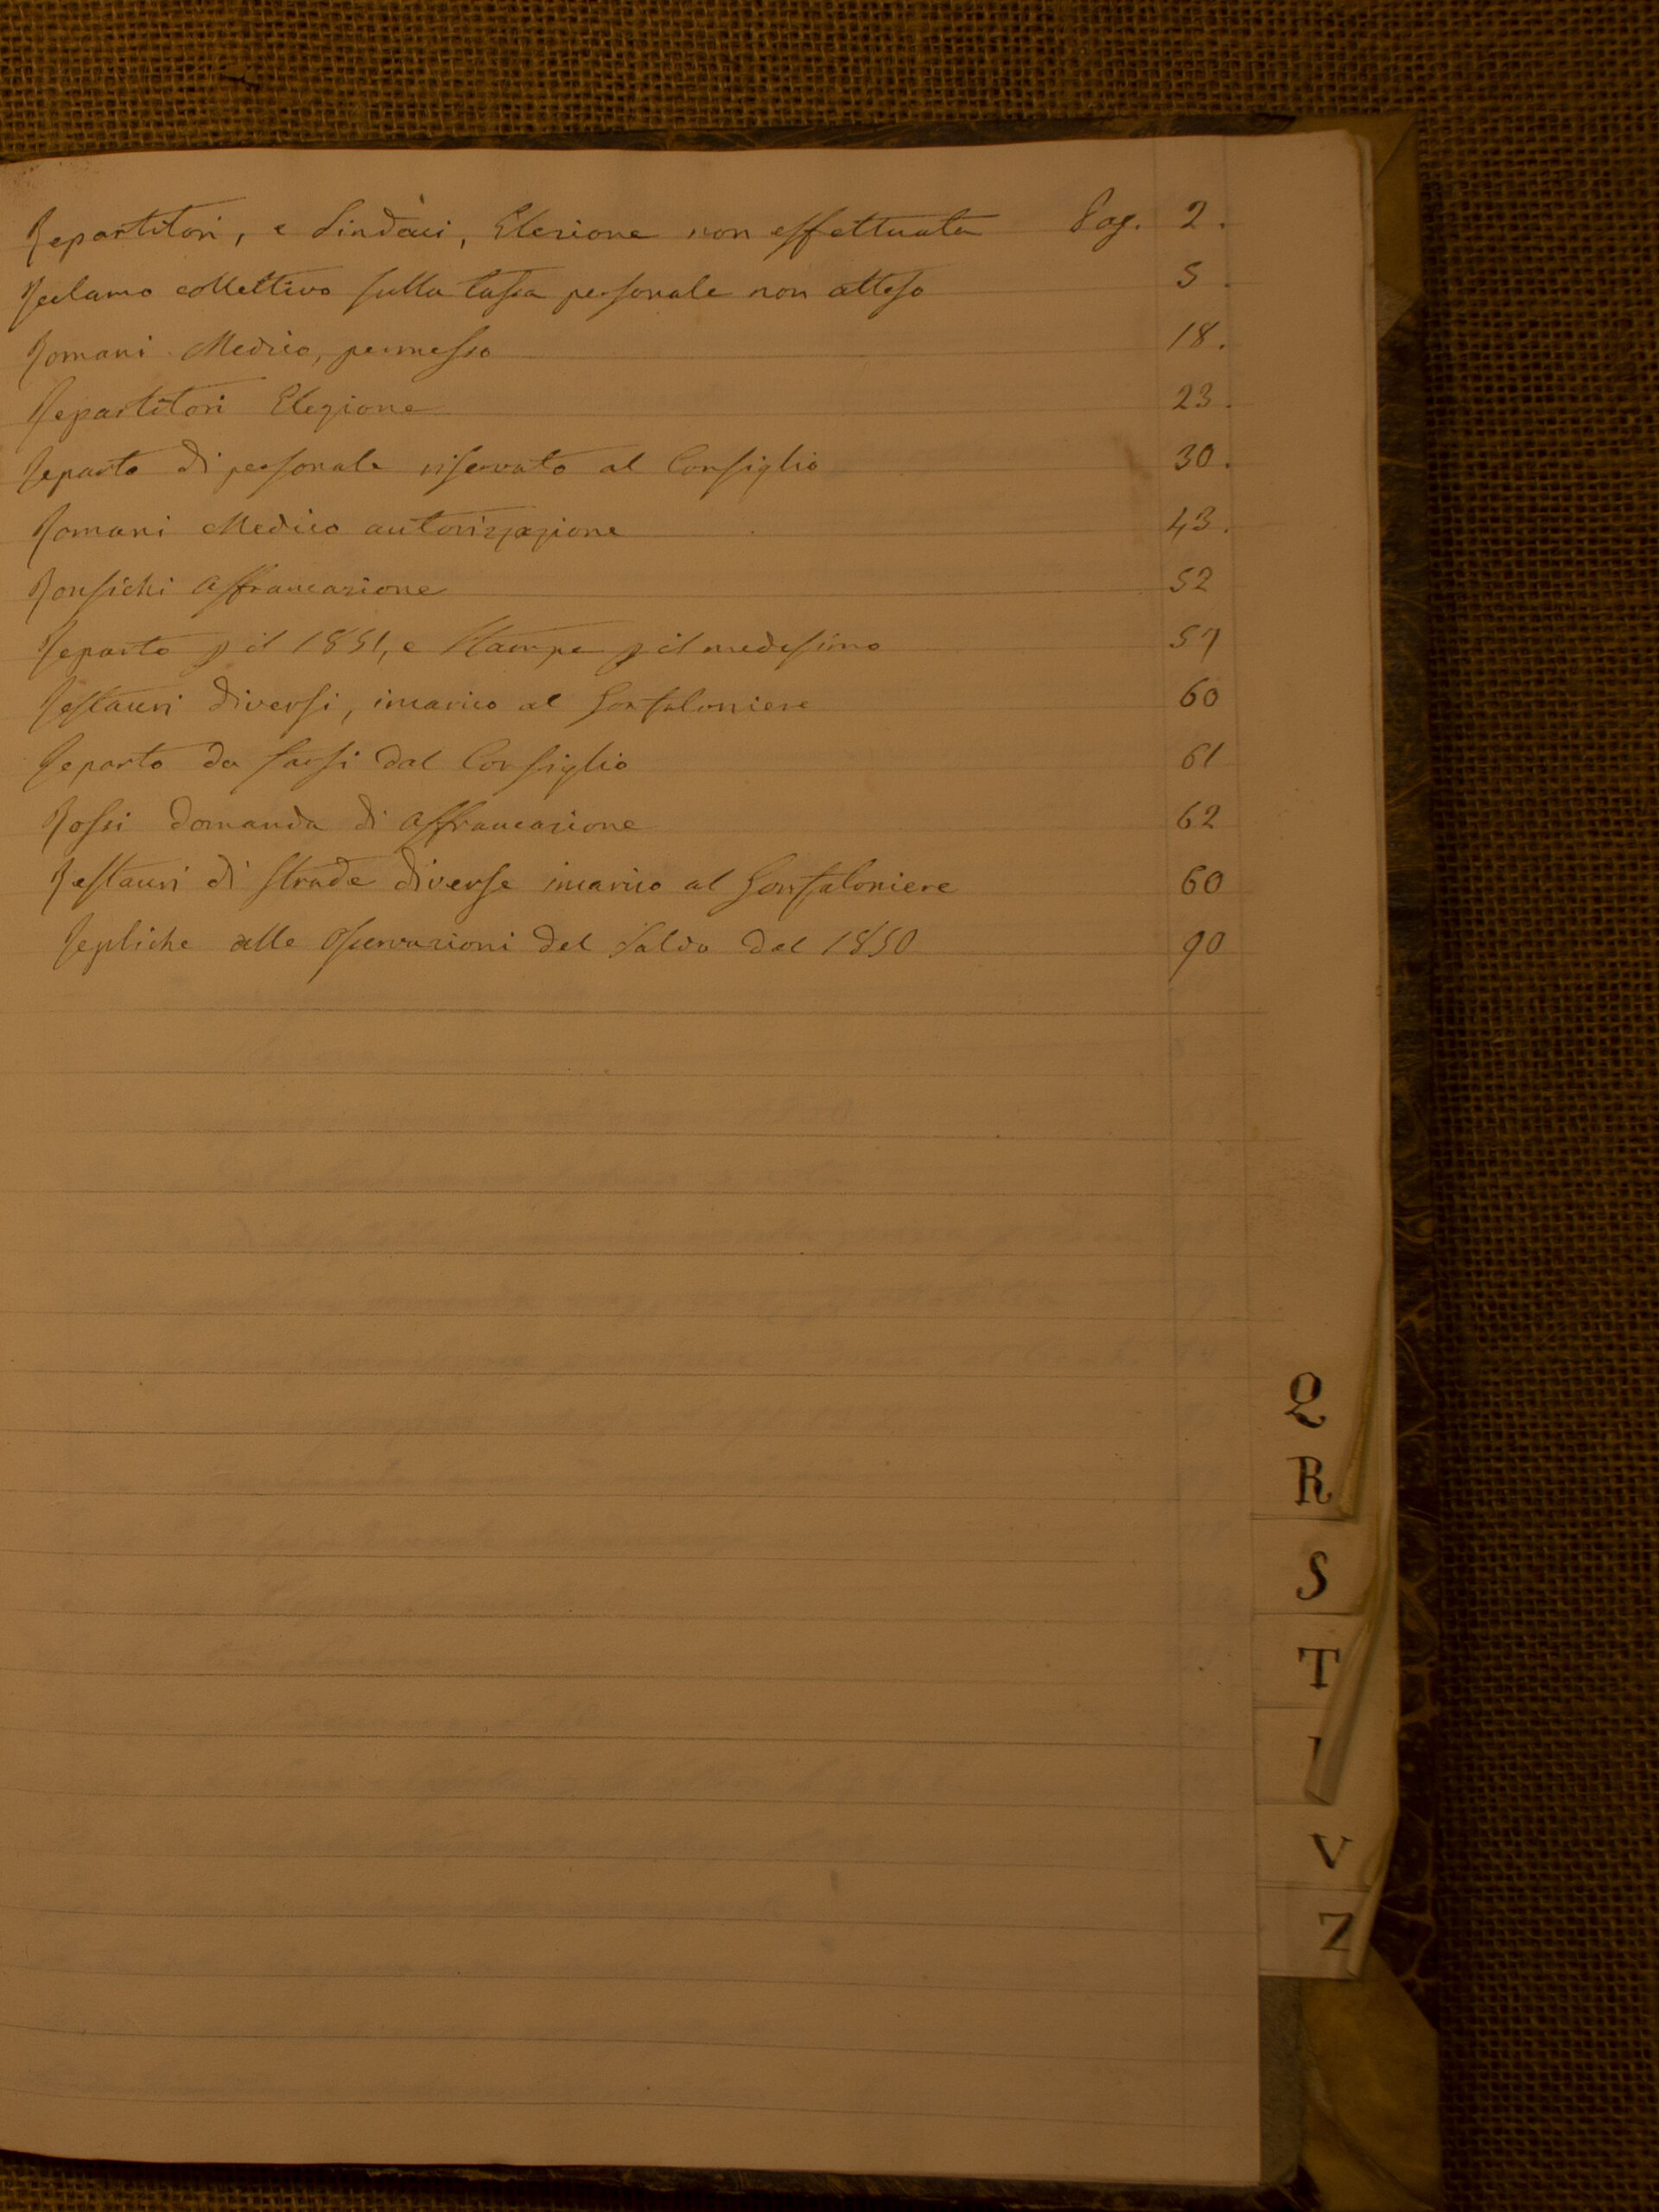 Repartitori, e Sindaci, Elezione non effettuata Pag. 2.
Reclamo collettivo sulla tassa personale non atteso 5.
Romani Medico, permesso 18.
Repartitori Elezione 23.
Reparto di personale riservato al Consiglio 30.
Romani Medico autorizzazione 43.
Ronsichi Affrancazione 52
Reparto p il 1851, e Stampe p il medesimo 57
Restauri diversi, incarico al Gonfaloniere 60
Reparto da farsi dal Consiglio 61
Rossi domanda di Affrancazione 62
Restauri di strade diverse incarico al Gonfaloniere 60
Repliche alle Osservazioni del Saldo del 1850 90
Q
R
S
T
V
Z